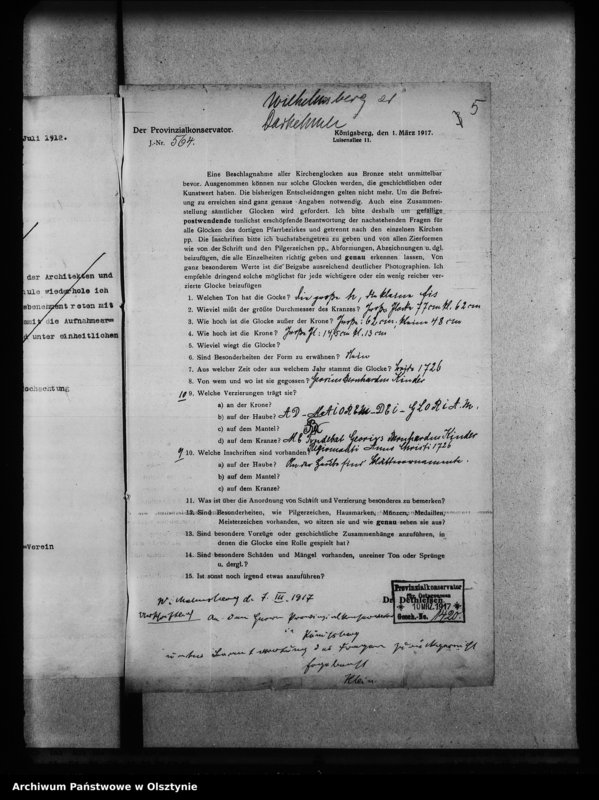 Juli 1912.
der Architekten und
ule wiederhole ich
mit die Aufnahme
d unter einheitlichen
ochachtung
Verein
Wilhelmsberg
Darkehmen
5
Der Provinzialkonservator.
J.-Nr. 564.
Königsberg, den 1. März 1917.
Luisenallee 11.
Eine Beschlagnahme aller Kirchenglocken aus Bronze steht unmittelbar
bevor. Ausgenommen können nur solche Glocken werden, die geschichtlichen oder
Kunstwert haben. Die bisherigen Entscheidungen gelten nicht mehr. Um die Befrei-
ung zu erreichen sind ganz genaue Angaben notwendig. Auch eine Zusammen-
stellung sämtlicher Glocken wird gefordert. Ich bitte deshalb um gefällige
postwendende tunlichst erschöpfende Beantwortung der nachstehenden Fragen für
alle Glocken des dortigen Pfarrbezirkes und getrennt nach den einzelnen Kirchen
pp. Die Inschriften bitte ich buchstabengetreu zu geben und von allen Zierformen
wie von der Schrift und den Pilgerzeichen pp., Abformungen, Abzeichnungen u. dgl.
beizufügen, die alle Einzelheiten richtig geben und genau erkennen lassen. Von
ganz besonderem Werte ist die Beigabe ausreichend deutlicher Photographien. Ich
empfehle dringend solche möglichst für jede wichtigere oder ein wenig reicher ver-
zierte Glocke beizufügen
1. Welchen Ton hat die Glocke? die große h, die kleine fis
2. Wieviel mißt der größte Durchmesser des Kranzes? Große Glocke 77 cm Kl. 62 cm
3. Wie hoch ist die Glocke außer der Krone? Große: 62 cm. kleine 48 cm
4. Wie hoch ist die Krone? Große Gl: 14,5 cm Kl. 13 cm
5. Wieviel wiegt die Glocke?
6. Sind Besonderheiten der Form zu erwähnen? Nein
7. Aus welcher Zeit oder aus welchem Jahr stammt die Glocke? beide 1726
8. Von wem und wo ist sie gegossen? Bernhardus Kinder
10 9. Welche Verzierungen trägt sie?
a) an der Krone?
b) auf der Haube? AD - MAIOREM - DEI - GLORIAM.
c) auf dem Mantel?
d) auf dem Kranze? ME Fundebat Georgius Bernhardus Kinder
Regiomonti Anno Christi 1726
9 10. Welche Inschriften sind vorhanden
a) auf der Haube? An der Haube feine Blätterornamente.
b) auf dem Mantel?
c) auf dem Kranze?
11. Was ist über die Anordnung von Schrift und Verzierung besonderes zu bemerken?
12. Sind Besonderheiten, wie Pilgerzeichen, Hausmarken, Münzen, Medaillen,
Meisterzeichen vorhanden, wo sitzen sie und wie genau sehen sie aus?
13. Sind besondere Vorzüge oder geschichtliche Zusammenhänge anzuführen, in
denen die Glocke eine Rolle gespielt hat?
14. Sind besondere Schäden und Mängel vorhanden, unreiner Ton oder Sprünge
u. dergl.?
15. Ist sonst noch irgend etwas anzuführen?
Dr. Dethlefsen.
Provinzialkonservator
für Ostpreussen
10 MRZ. 1917
Gesch.-No. 1420.
Wilhelmsberg d. 7. III. 1917
An den Herrn Provinzialkonservator
in Königsberg
unter Beantwortung der Fragen zurückgereicht
Klein
Archiwum Państwowe w Olsztynie